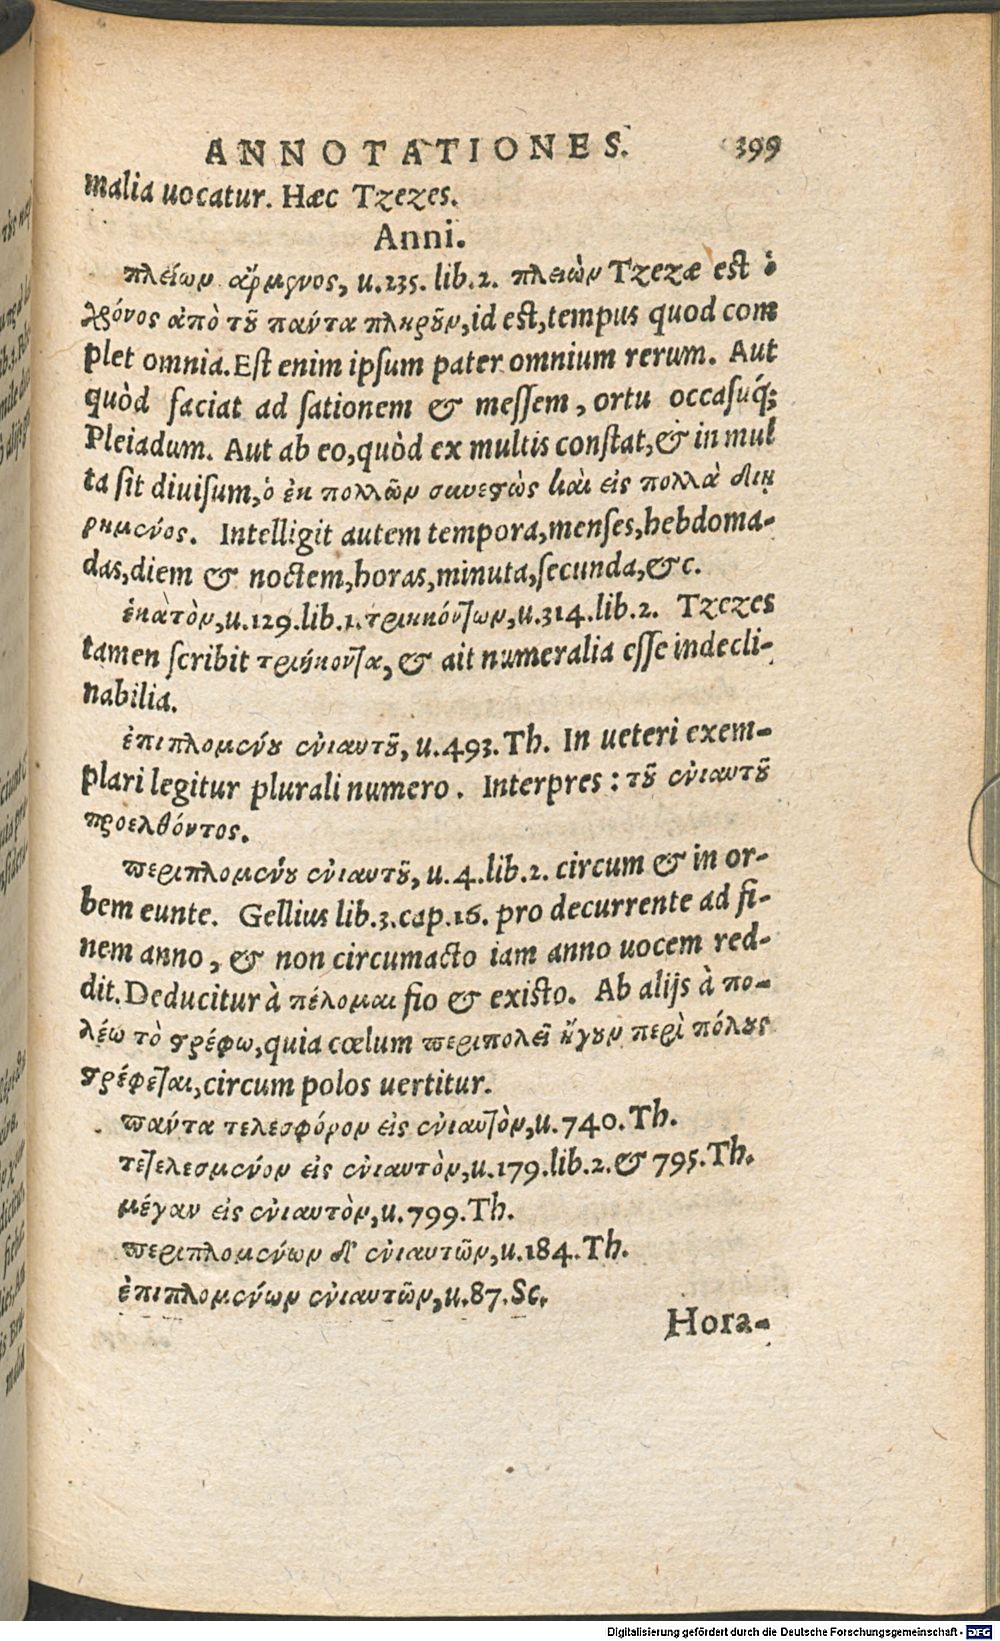 ANNOTATIONES. 399
malia uocatur. Hæc Tzezes.
Anni.
πλείων ἄρμενος, u.235. lib.2. πλειὼν Tzezæ est ὁ
χρόνος ἀπὸ τοῦ παύτα πληροῦν, id est, tempus quod com
plet omnia. Est enim ipsum pater omnium rerum. Aut
quòd faciat ad sationem & messem, ortu occasuq́;
Pleiadum. Aut ab eo, quòd ex multis constat, & in mul
ta sit diuisum, ὁ ἐκ πολλῶν συνεστὼς καὶ εἰς πολλὰ διῃ
ρημένος. Intelligit autem tempora, menses, hebdoma-
das, diem & noctem, horas, minuta, secunda, &c.
ἑκατὸν, u.129.lib.1. τριηκόντων, u.314.lib.2. Tzezes
tamen scribit τριήκοντα, & ait numeralia esse indecli-
nabilia.
ἐπιπλομένου ἐνιαυτοῦ, u.493.Th. In ueteri exem-
plari legitur plurali numero. Interpres: τοῦ ἐνιαυτοῦ
προελθόντος.
περιπλομένου ἐνιαυτοῦ, u.4.lib.2. circum & in or-
bem eunte. Gellius lib.3.cap.16. pro decurrente ad fi-
nem anno, & non circumacto iam anno uocem red-
dit. Deducitur à πέλομαι fio & existo. Ab alijs à πο-
λέω τὸ στρέφω, quia cœlum περιπολεῖ ἤγουν περὶ πόλους
στρέφεται, circum polos uertitur.
παύτα τελεσφόρον εἰς ἐνιαυτὸν, u.740.Th.
τετελεσμένον εἰς ἐνιαυτὸν, u.179.lib.2.& 795.Th.
μέγαν εἰς ἐνιαυτὸν, u.799.Th.
περιπλομένων δ' ἐνιαυτῶν, u.184.Th.
ἐπιπλομένων ἐνιαυτῶν, u.87.Sc.
Hora-
Digitalisierung gefördert durch die Deutsche Forschungsgemeinschaft - DFG